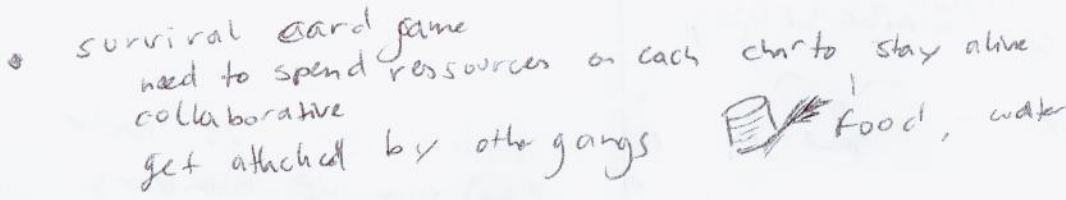 • survival card game
need to spend ressources on each char to stay alive
collaborative
get attacked by other gangs
food, water